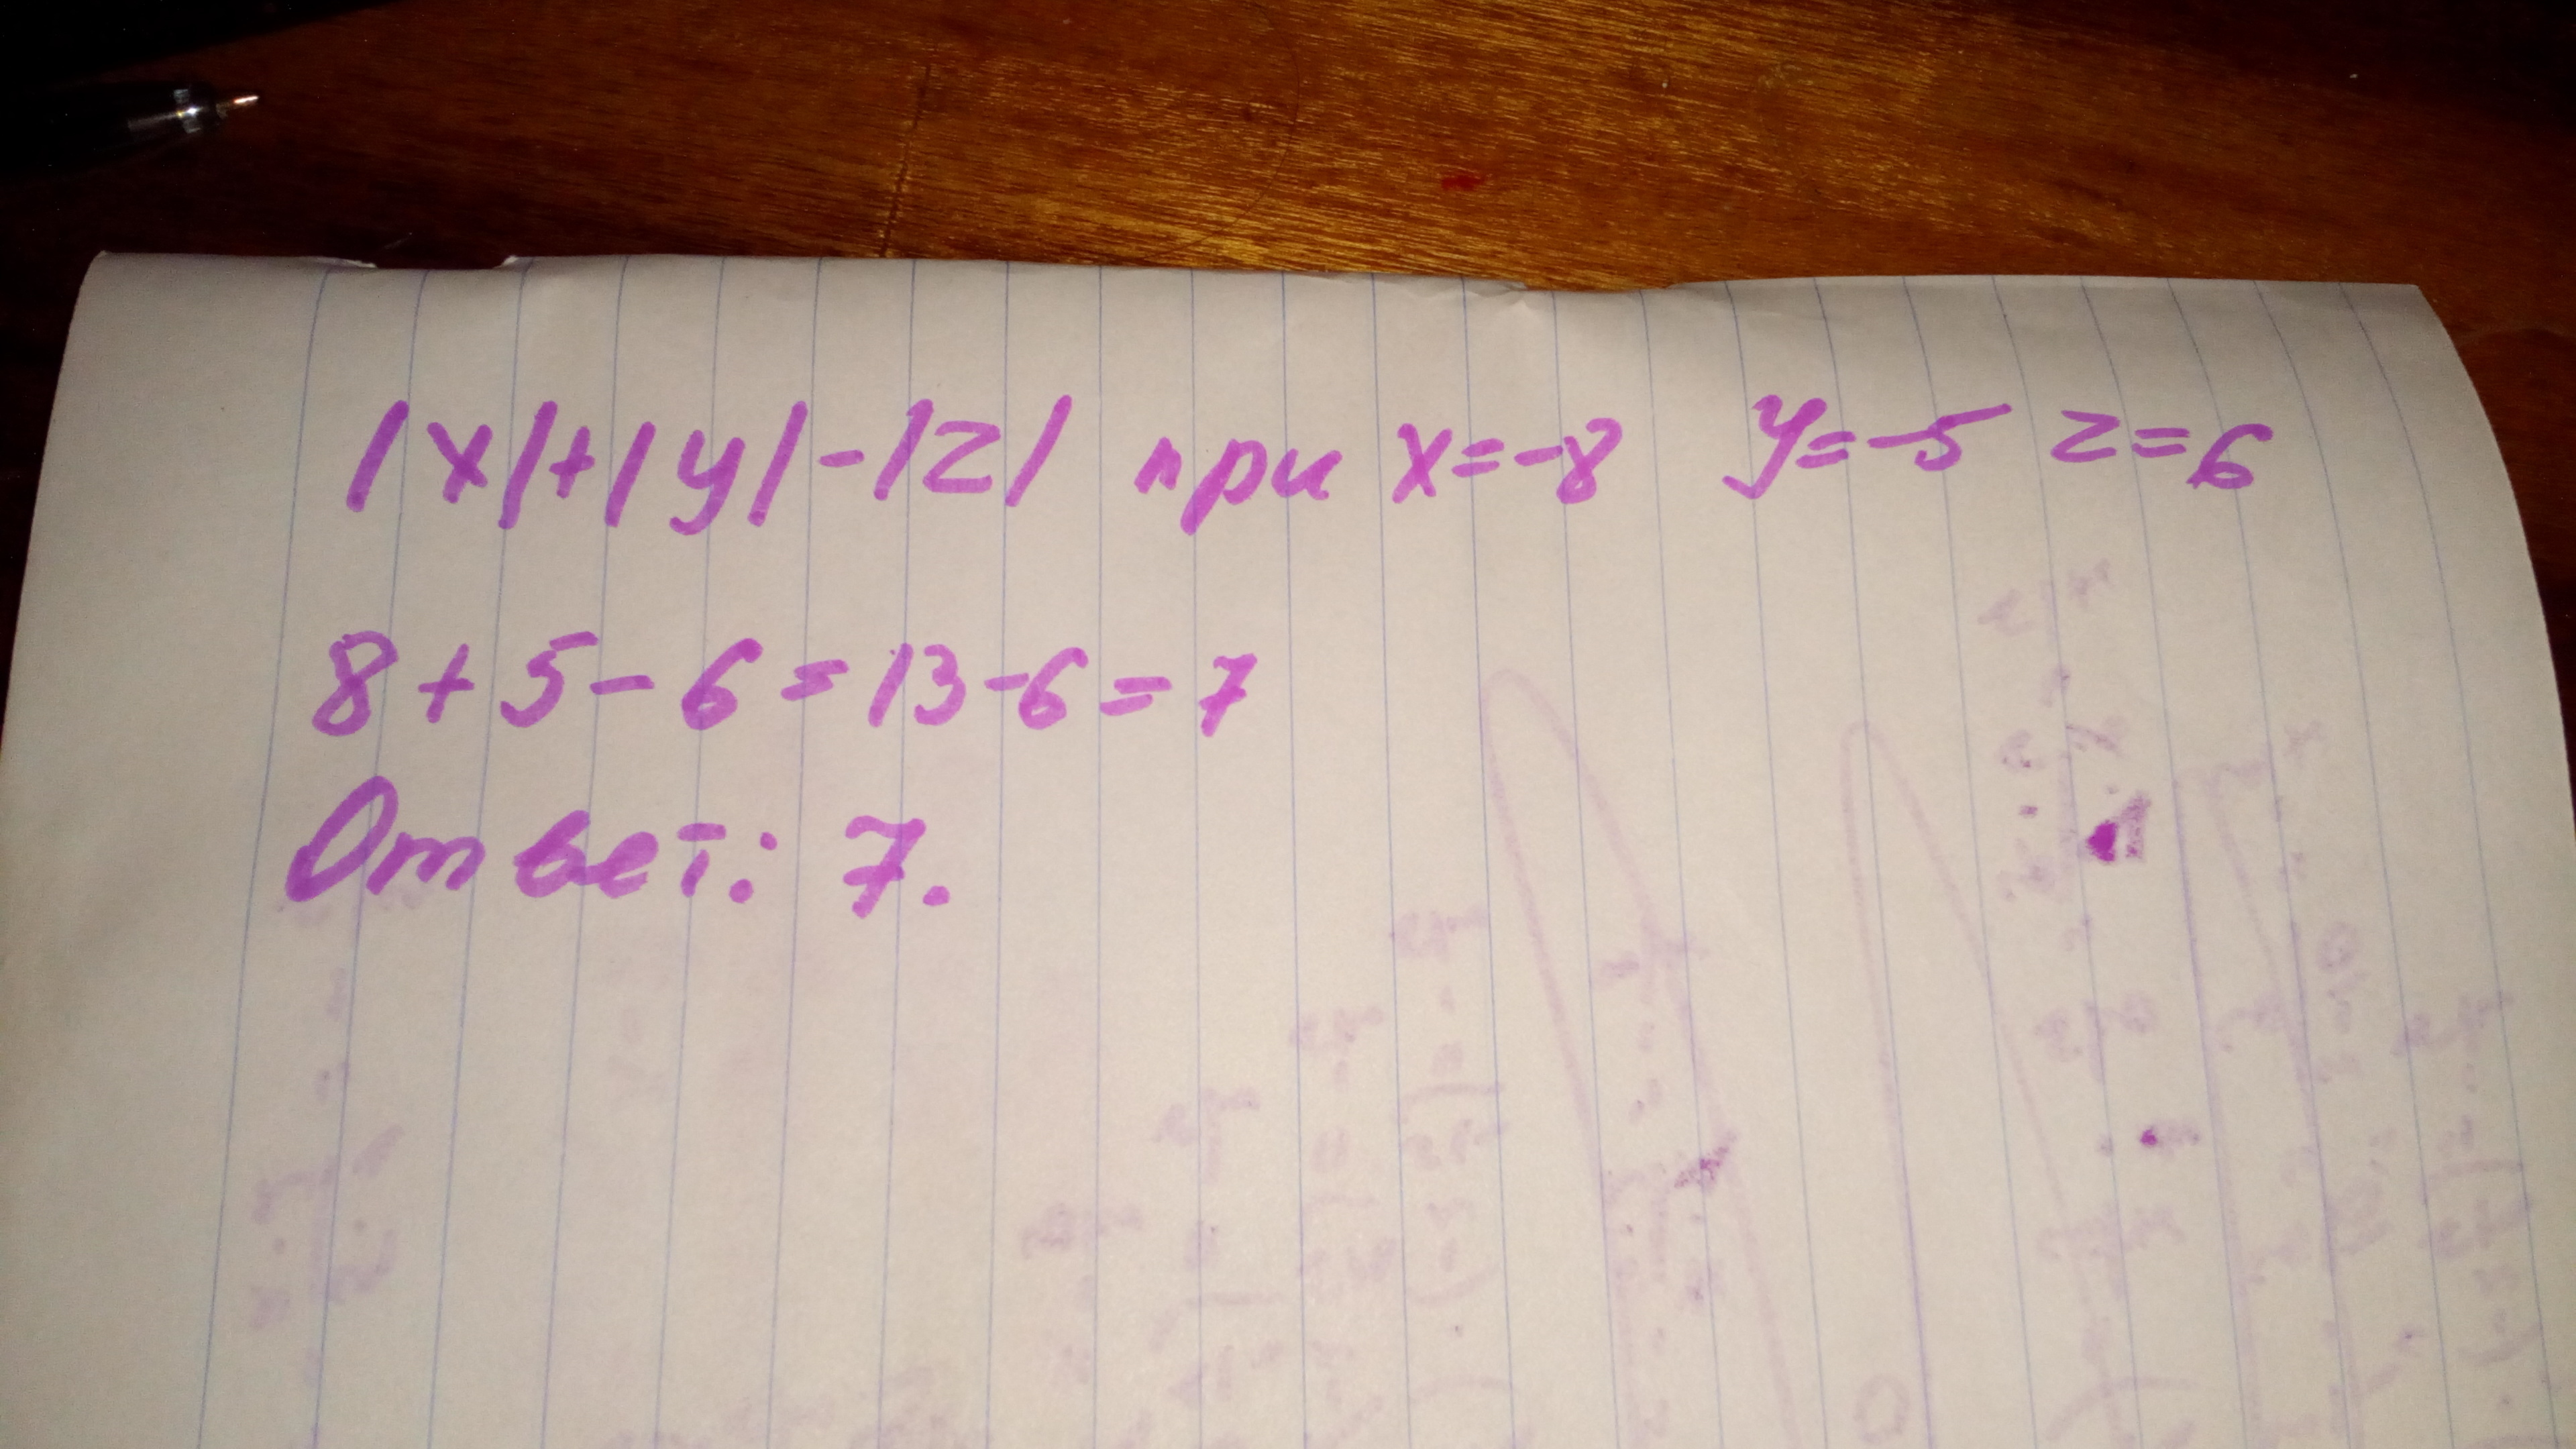 |x|+|y|-|z| при x=-8 y=-5 z=6
8+5-6=13-6=7
Ответ: 7.